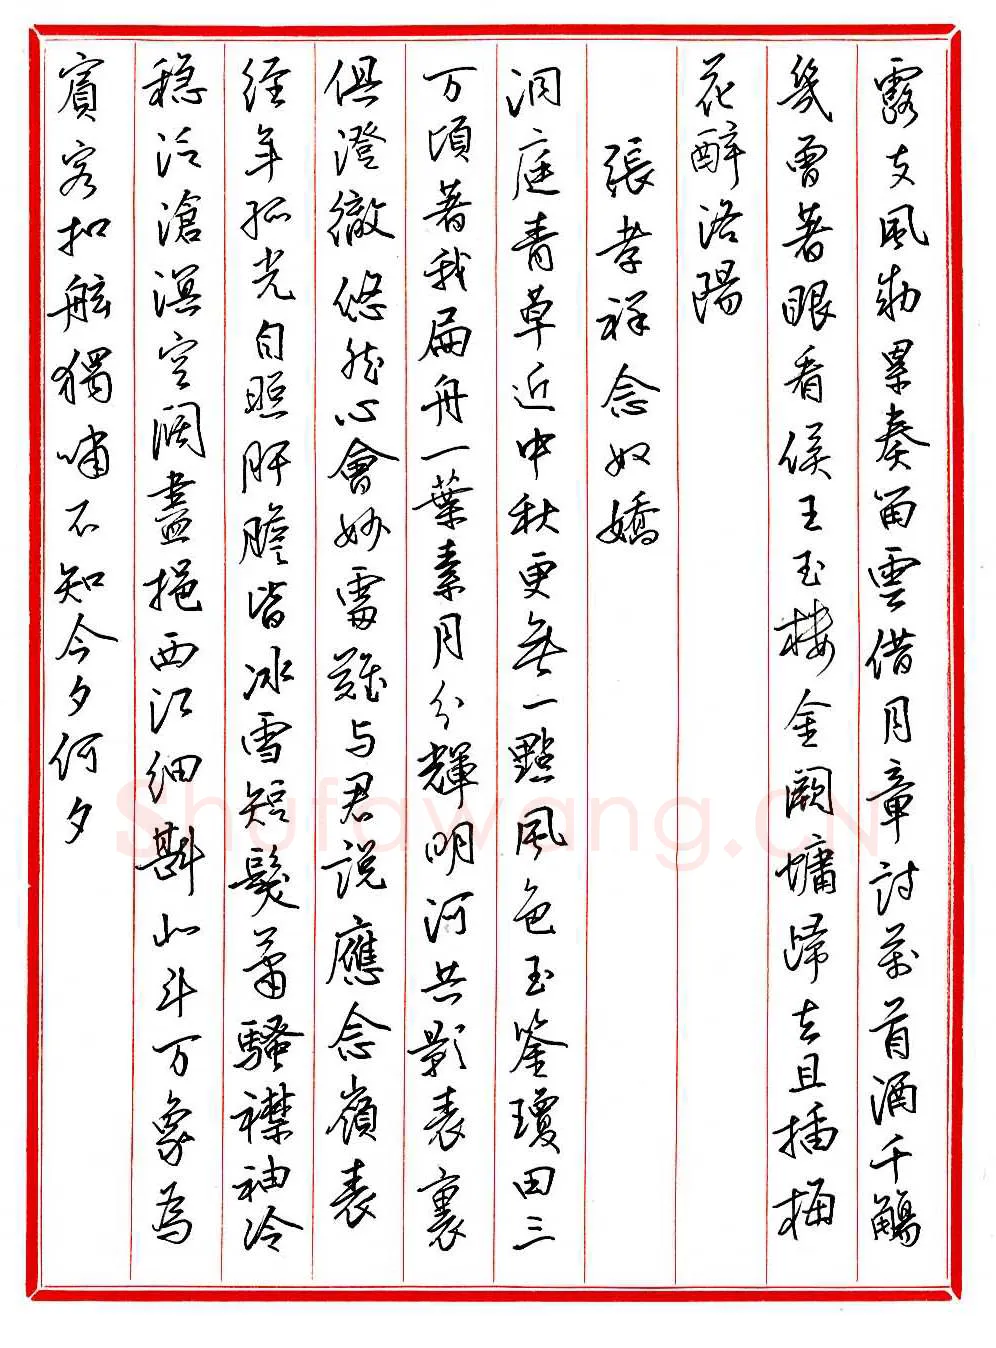 露支風勅累奏留雲借月章詩萬首酒千觴
幾曽著眼看侯王玉樓金闕慵歸去且插梅
花醉洛陽
張孝祥念奴嬌
洞庭青草近中秋更無一點風色玉鑒瓊田三
万頃著我扁舟一葉素月分輝明河共影表裏
俱澄徹悠然心會妙處難与君説應念嶺表
經年孤光自照肝膽皆冰雪短髮蕭騷襟袖冷
穩泛滄溟空闊盡挹西江細斟北斗万象為
賓客扣舷獨嘯不知今夕何夕
Shufawang.CN